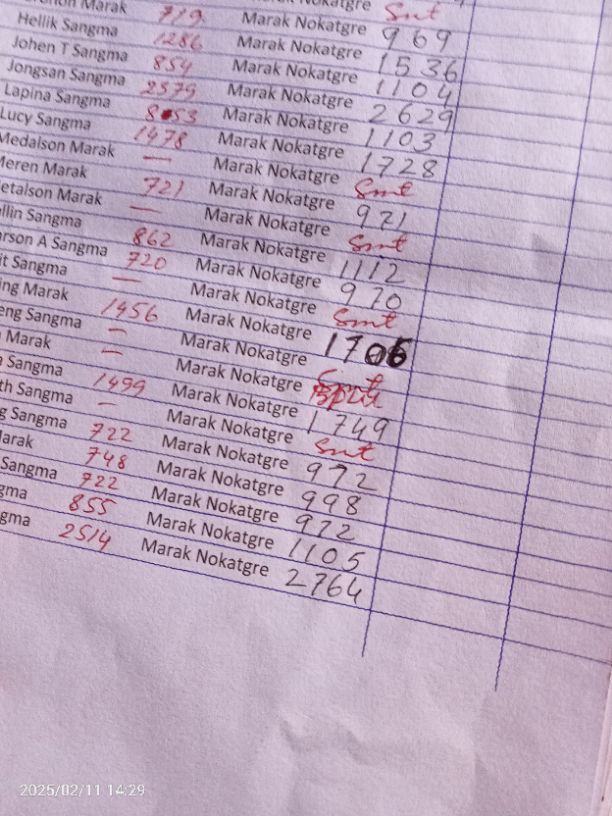 Marak 719 Marak Nokatgre 969
Hellik Sangma 1286 Marak Nokatgre 1536
Johen T Sangma 854 Marak Nokatgre 1104
Jongsan Sangma 2579 Marak Nokatgre 2629
Lapina Sangma 853 Marak Nokatgre 1103
Lucy Sangma 1478 Marak Nokatgre 1728
Medalson Marak — Marak Nokatgre Smt
Meren Marak 721 Marak Nokatgre 971
etalson Marak — Marak Nokatgre Smt
llin Sangma 862 Marak Nokatgre 1112
arson A Sangma 720 Marak Nokatgre 970
it Sangma — Marak Nokatgre Smt
ing Marak 1456 Marak Nokatgre 1706
eng Sangma — Marak Nokatgre Smt
Marak — Marak Nokatgre
Sangma 1499 Marak Nokatgre 1749
th Sangma — Marak Nokatgre Smt
g Sangma 722 Marak Nokatgre 972
arak 748 Marak Nokatgre 998
Sangma 722 Marak Nokatgre 972
gma 855 Marak Nokatgre 1105
gma 2514 Marak Nokatgre 2764
2025/02/11 14:29